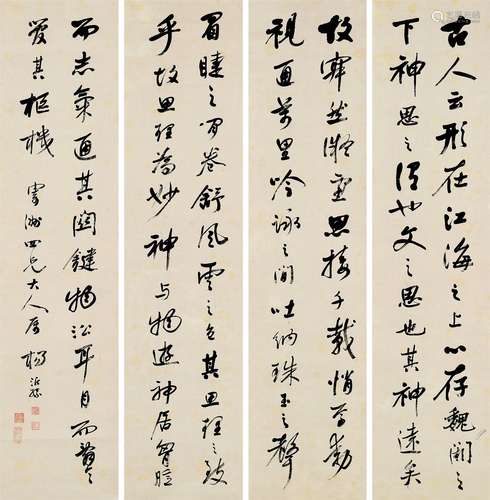 古人云形在江海之上心存魏闕之
下神思之謂也文之思也其神遠矣
故然凝思接千載悄焉動
視通萬里吟詠之間吐納珠玉之聲
眉睫之間卷舒風雲之色其思理之致
乎故思理為妙神與物遊神居胸臆
而志氣通其關鍵物沿耳目而
管其樞機 雪洲四兄大人屬 楊沂孫